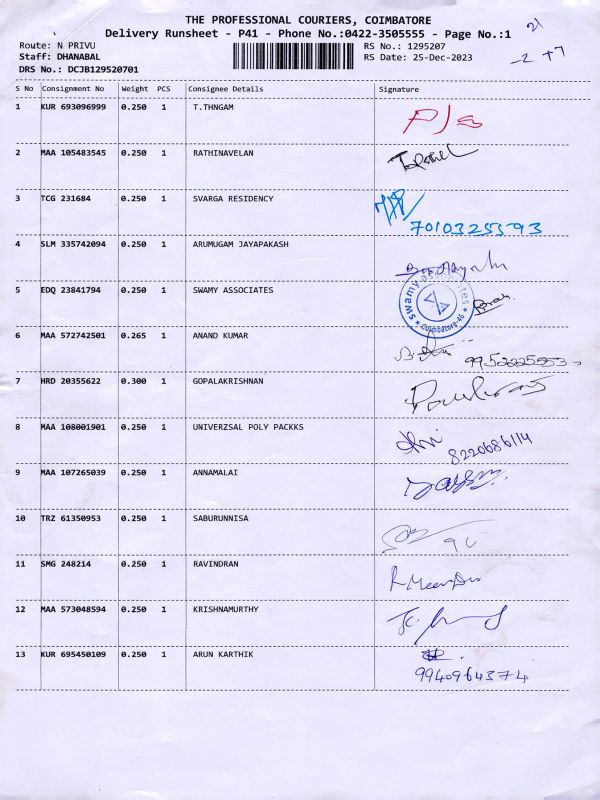 THE PROFESSIONAL COURIERS, COIMBATORE
Delivery Runsheet - P41 - Phone No.:0422-3505555 - Page No.:1
21
-2 +7
Route: N PRIVU
RS No.: 1295207
Staff: DHANABAL
RS Date: 25-Dec-2023
DRS No.: DCJB129520701
S No Consignment No Weight PCS Consignee Details Signature
1 KUR 693096999 0.250 1 T.THNGAM
2 MAA 105483545 0.250 1 RATHINAVELAN
3 TCG 231684 0.250 1 SVARGA RESIDENCY
7010325593
4 SLM 335742094 0.250 1 ARUMUGAM JAYAPAKASH
5 EDQ 23841794 0.250 1 SWAMY ASSOCIATES
swamy associates
Coimbatore-45
6 MAA 572742501 0.265 1 ANAND KUMAR
7 HRD 20355622 0.300 1 GOPALAKRISHNAN
8 MAA 108001901 0.250 1 UNIVERZSAL POLY PACKKS
8220686114
9 MAA 107265039 0.250 1 ANNAMALAI
10 TRZ 61350953 0.250 1 SABURUNNISA
11 SMG 248214 0.250 1 RAVINDRAN
12 MAA 573048594 0.250 1 KRISHNAMURTHY
13 KUR 695450109 0.250 1 ARUN KARTHIK
9940964374